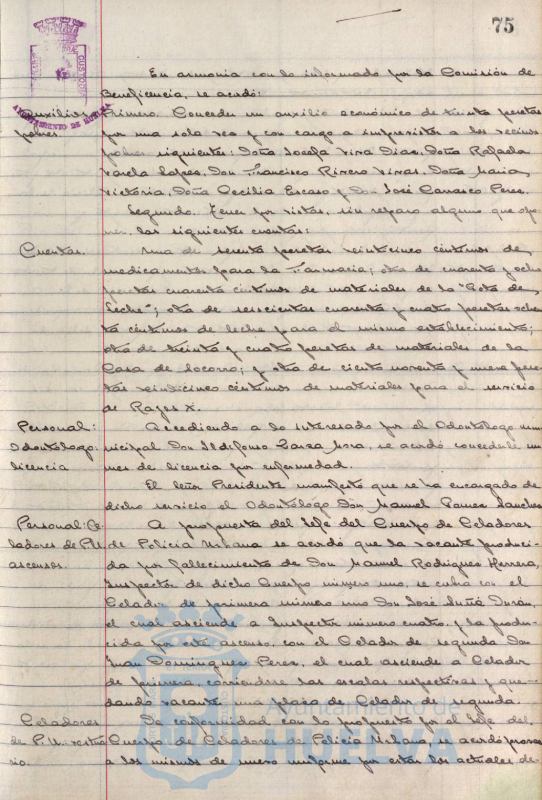 75
AYUNTAMIENTO DE HUELVA
En armonia con lo informado por la Comisión de
Beneficencia, se acordó:
Auxilios Primero. Conceder un auxilio económico de treinta pesetas
pobres por una sola vez y con cargo a imprevistos a los vecinos
pobres siguientes: Doña Josefa Viva Diaz, Doña Rafaela
Varela Lopez, Don Francisco Rivero Vivas, Doña Maria
Victoria, Doña Cecilia Escaso y Don José Carrasco Perez.
Segundo. Tener por vistas, sin reparo alguno que opo-
ner, las siguientes cuentas:
Cuentas. Una de sesenta pesetas veinticinco centimos de
medicamentos para la Farmacia; otra de cuarenta y ocho
pesetas cuarenta centimos de materiales de la "Gota de
Leche"; otra de seiscientas cuarenta y cuatro pesetas ochen
ta céntimos de leche para el mismo establecimiento;
otra de treinta y cuatro pesetas de materiales de la
Casa de Socorro; y otra de ciento noventa y nueve pese-
tas veinticinco céntimos de materiales para el servicio
de Rayos X.
Personal: Accediendo a lo interesado por el Odontólogo mu-
Odontólogo: nicipal Don Ildefonso Mora, se acordó concederle un
licencia mes de licencia por enfermedad.
El Señor Presidente manifestó que se ha encargado de
dicho servicio el Odontólogo Don Manuel Gomez Sanchez
Personal: Ce- A propuesta del Jefe del Cuerpo de Celadores
ladores de P.U. de Policia Urbana se acordó que la vacante produci-
ascensos. da por fallecimiento de Don Manuel Rodriguez Herrera,
Inspector de dicho Cuerpo número uno, se cubra con el
Celador de primera número uno Don José Suñé Durán,
el cual asciende a Inspector número cuatro, y la produ-
cida por este ascenso, con el Celador de segunda Don
Juan Dominguez Perez, el cual asciende a Celador
de primera, corriendose las escalas respectivas y que-
dando vacante una plaza de Celador de segunda.
Celadores De conformidad con lo propuesto por el Jefe del
de P.U. vestua Cuerpo de Celadores de Policia Urbana, se acordó proveer
rio. a los mismos de nuevo uniforme por estar los actuales de-
Ayuntamiento de
HUELVA